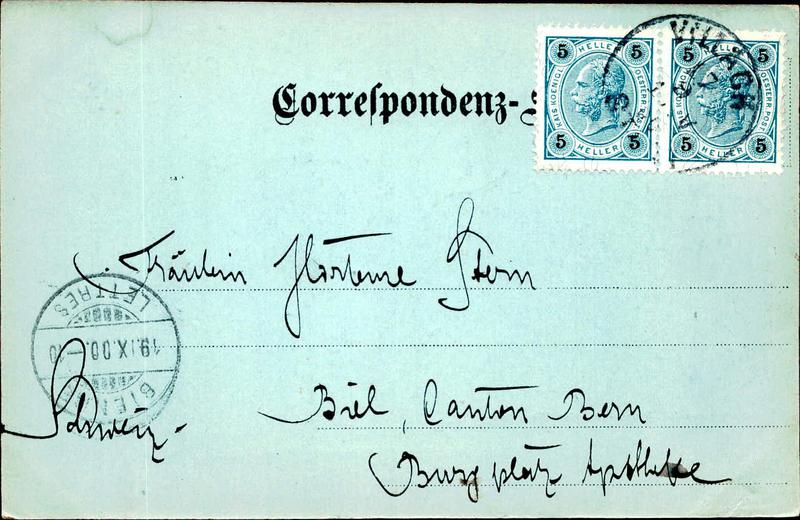 Correspondenz-
5 HELLER 5
KAIS. KOENIGL. OESTERR. POST
5 HELLER 5
5 HELLER 5
KAIS. KOENIGL. OESTERR. POST
5 HELLER 5
VILLACH
Fräulein Hortense Stern
LETTRES
19.IX.00.
BIEL
Biel, Canton Bern
Schweiz.
Burgplatz Apotheke